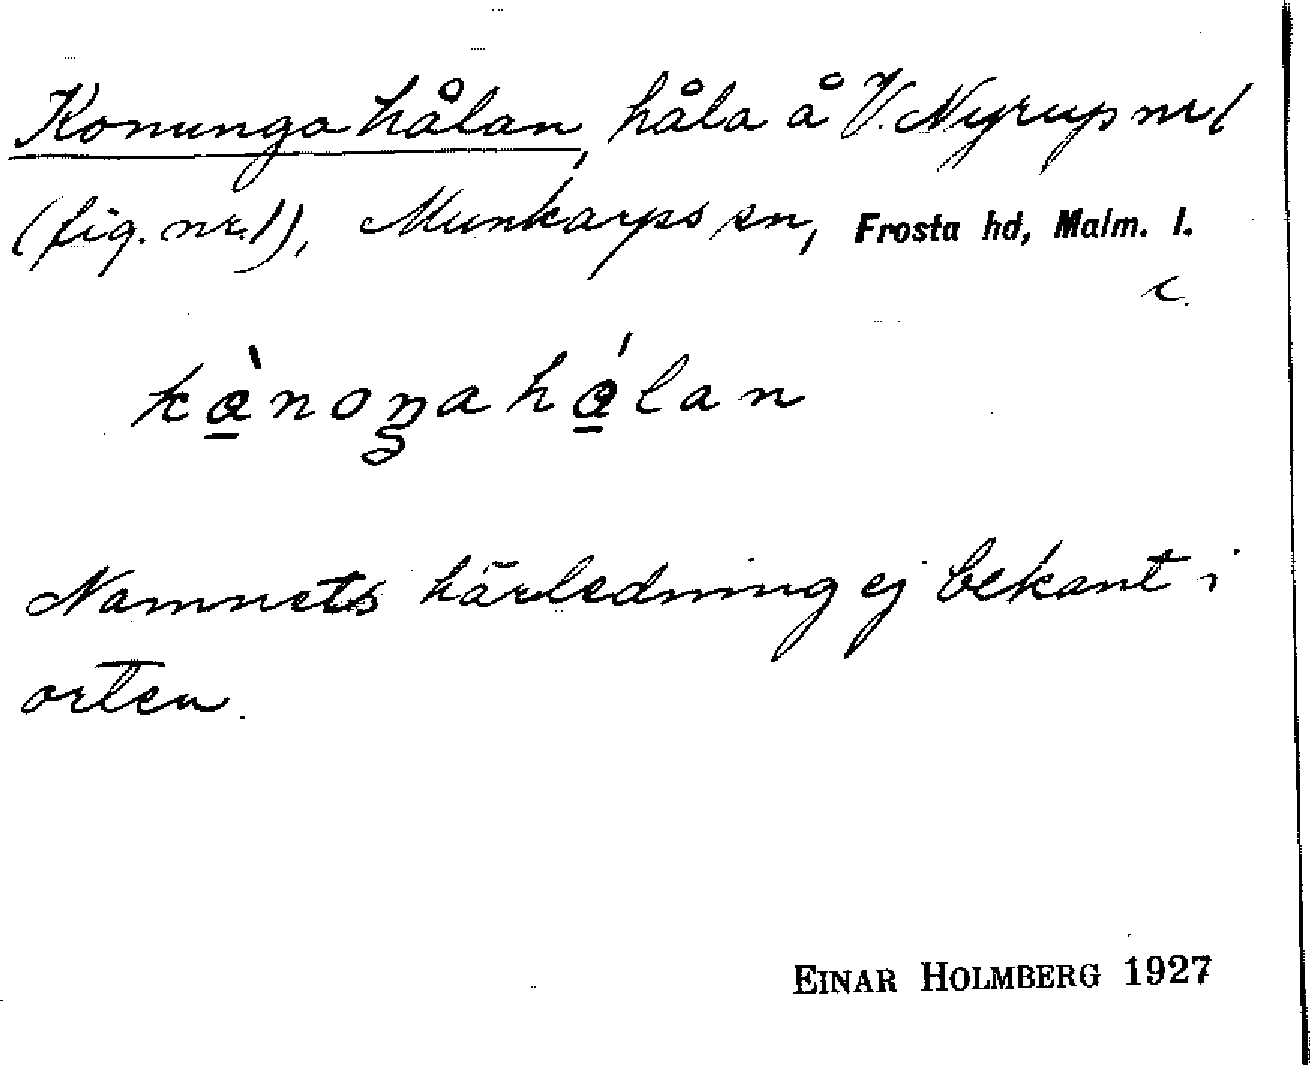 Konungahålan, håla å V. Nyrup nr 1
(fig. nr. 1), Munkarps sn, Frosta hd, Malm. l.
c.
kànoŋahálan
Namnets härledning ej bekant i
orten.
EINAR HOLMBERG 1927